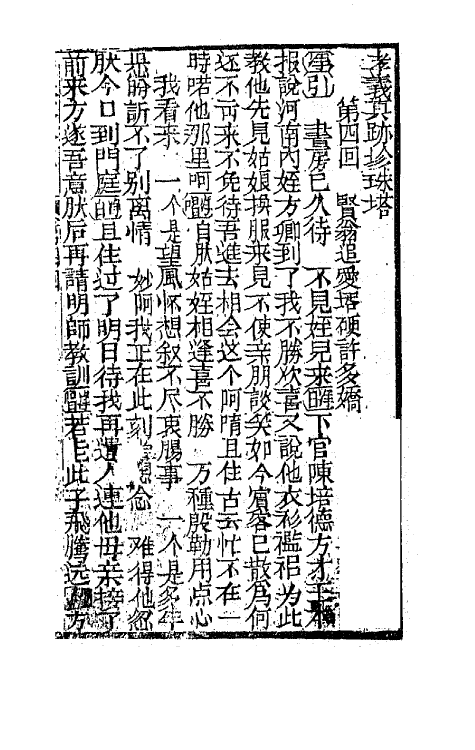 孝義真跡珍珠塔
第四回　賢翁追愛壻硬許多嬌
引　書房已久待　不見姪兒來　下官陳培德方才
报說河南內姪方卿到了我不勝欢喜又說他衣衫襤褛为此
教他先見姑娘换服來見不使亲朋談笑如今賓客已散為何
还不可来不免待吾進去相会这个阿隋且住古云忙不在一
時啫他那里呵自肰姑姪相逢喜不勝　万種殷勤用点心
我看来　一个是望風怀想叙不尽衷腸事　一个是多年
訴不了别离情　妙啊我正在此刻　念　难得他忽
肰今日到門庭且住过了明日待我再遣人連他母亲接了
前来方遂吾意肰后再請明師教訓若此子飛騰远方